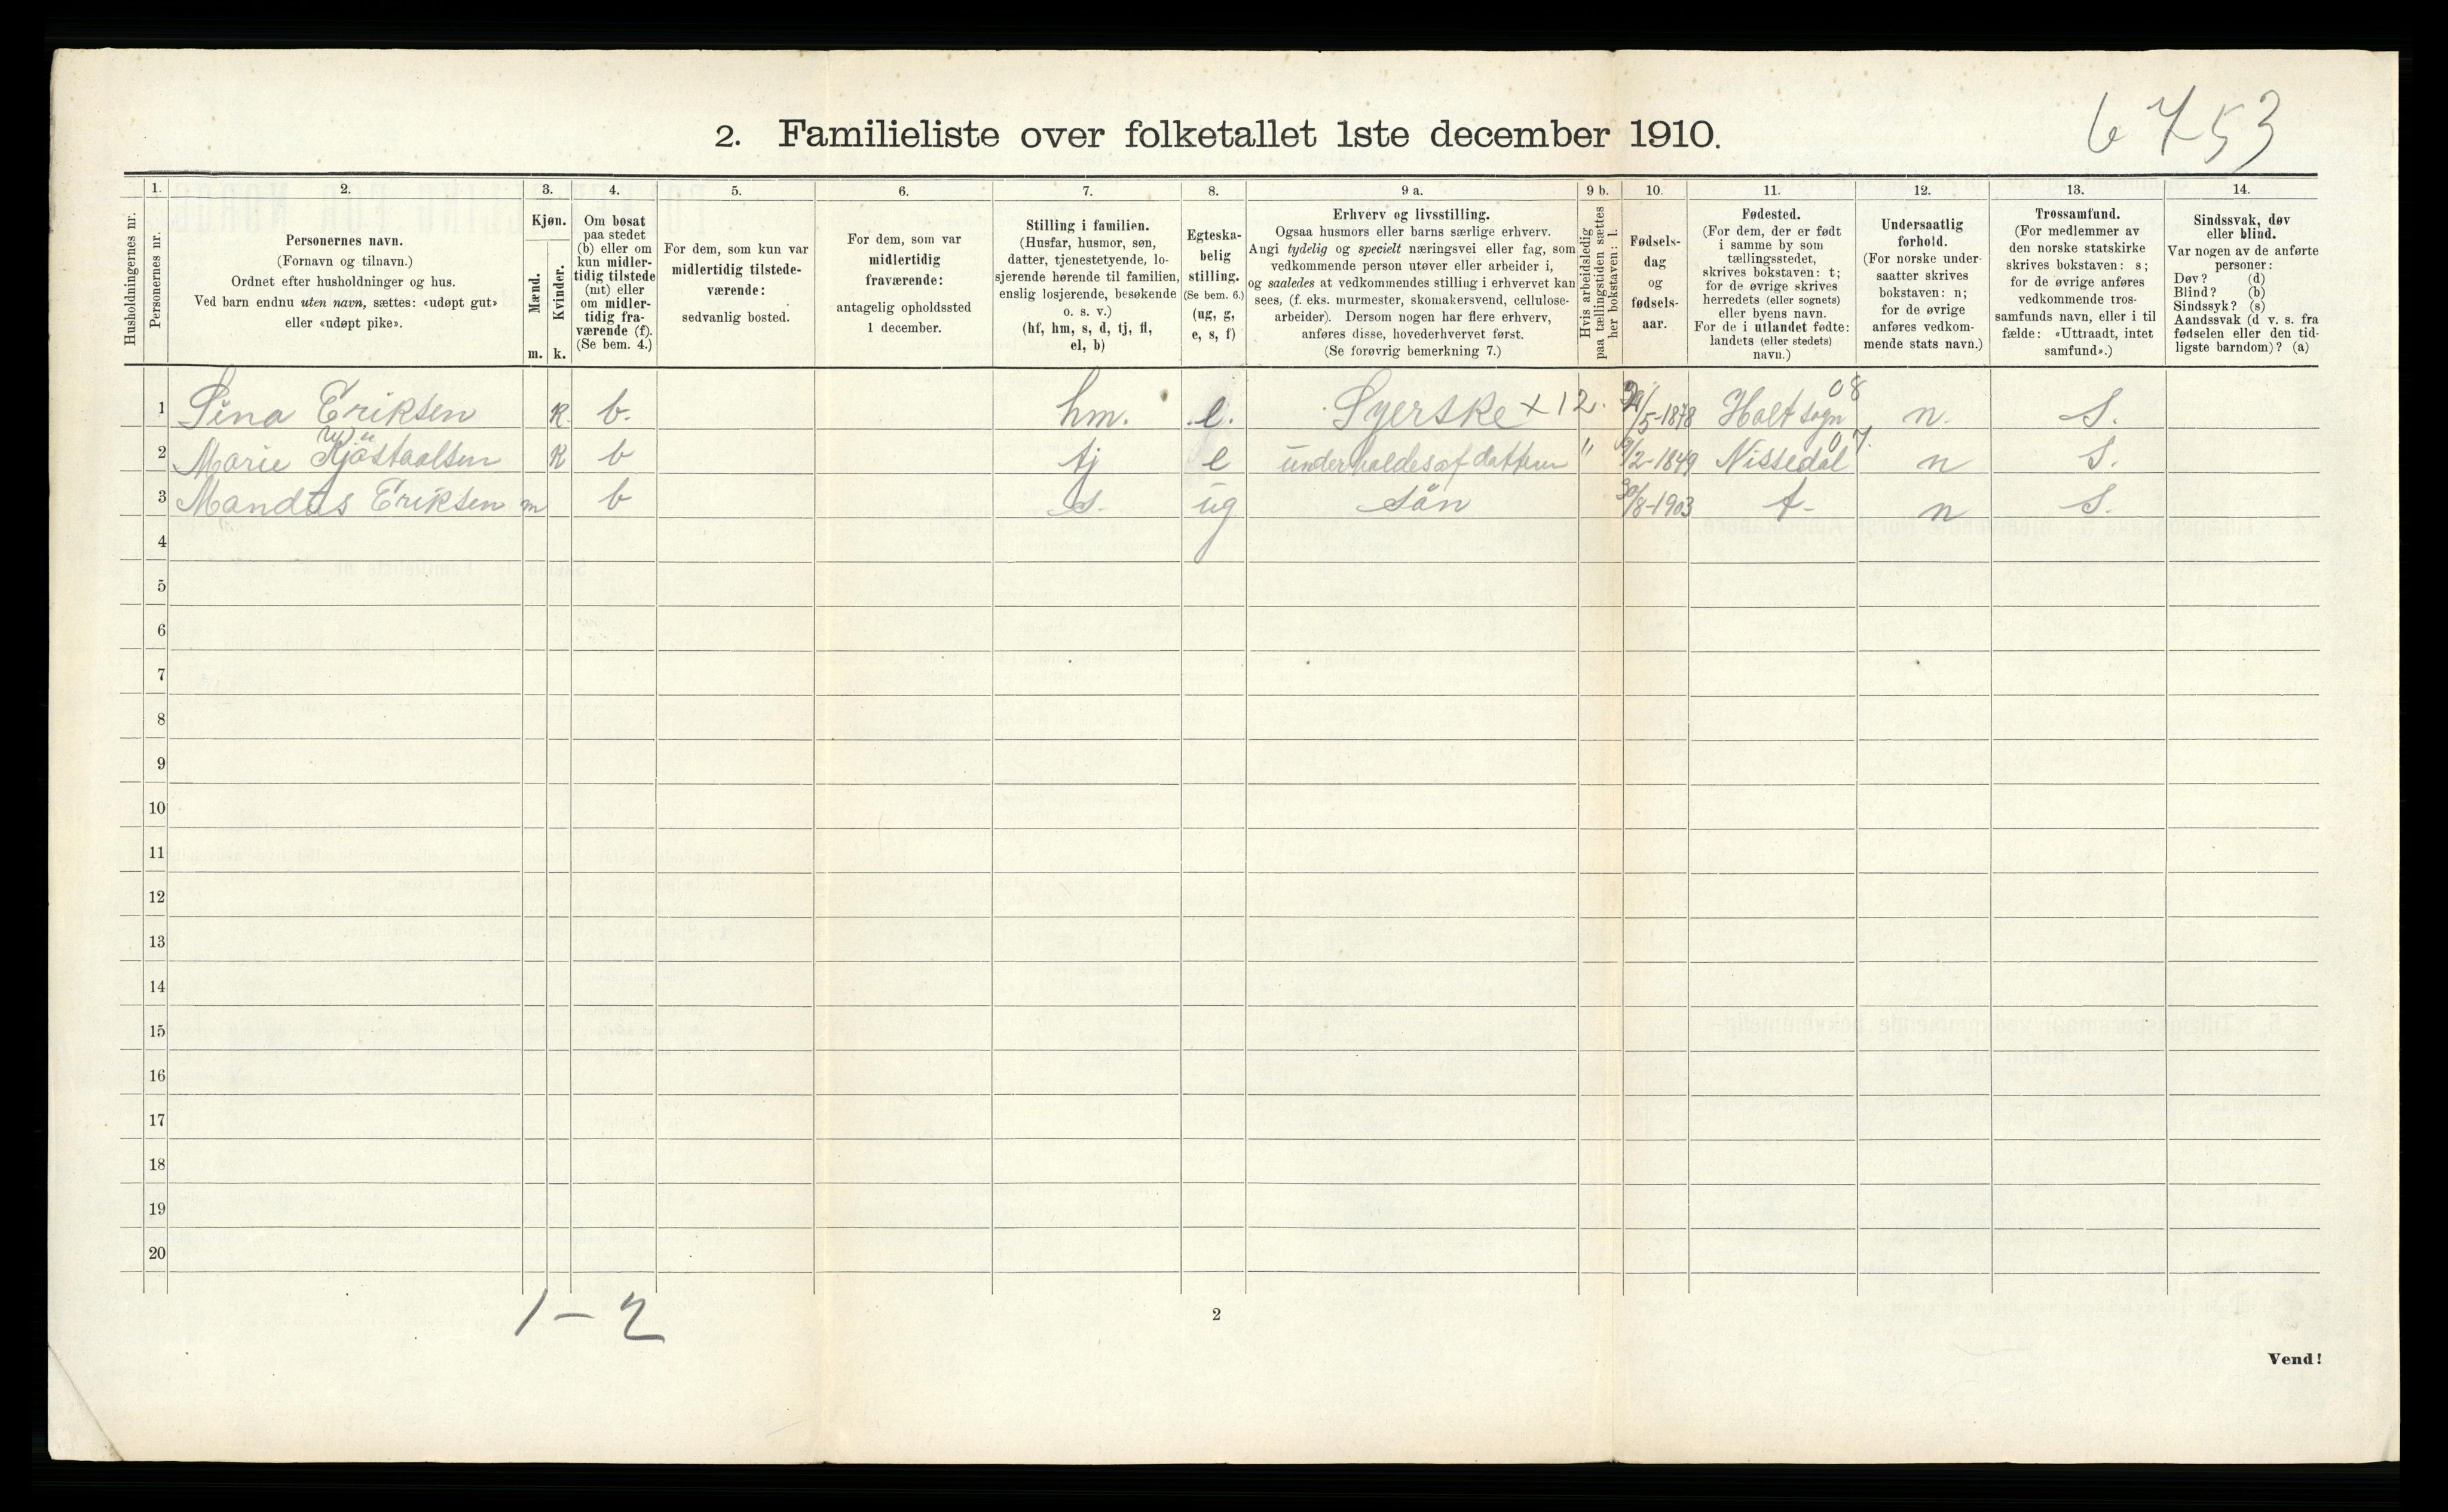 6 753
2. Familieliste over folketallet 1ste december 1910.
Husholdningernes nr.
1. 2. 3. 4. 5. 6. 7. 8. 9 a. 9 b. 10. 11. 12. 13. 14.
Personernes nr.
Personernes navn.
(Fornavn og tilnavn.)
Ordnet efter husholdninger og hus.
Ved barn endnu uten navn, sættes: «udøpt gut»
eller «udøpt pike».
Kjøn.
Mænd.
Kvinder.
m. k.
Om bosat
paa stedet
(b) eller om
kun midler-
tidig tilstede
(mt) eller
om midler-
tidig fra-
værende (f).
(Se bem. 4.)
For dem, som kun var
midlertidig tilstede-
værende:
sedvanlig bosted.
For dem, som var
midlertidig
fraværende:
antagelig opholdssted
1 december.
Stilling i familien.
(Husfar, husmor, søn,
datter, tjenestetyende, lo-
sjerende hørende til familien,
enslig losjerende, besøkende
o. s. v.)
(hf, hm, s, d, tj, fl,
el, b)
Egteska-
belig
stilling.
(Se bem. 6.)
(ug, g,
e, s, f)
Erhverv og livsstilling.
Ogsaa husmors eller barns særlige erhverv.
Angi tydelig og specielt næringsvei eller fag, som
vedkommende person utøver eller arbeider i,
og saaledes at vedkommendes stilling i erhvervet kan
sees, (f. eks. murmester, skomakersvend, cellulose-
arbeider). Dersom nogen har flere erhverv,
anføres disse, hovederhvervet først.
(Se forøvrig bemerkning 7.)
Hvis arbeidsledig
paa tællingstiden sættes
her bokstaven: l.
Fødsels-
dag
og
fødsels-
aar.
Fødested.
(For dem, der er født
i samme by som
tællingsstedet,
skrives bokstaven: t;
for de øvrige skrives
herredets (eller sognets)
eller byens navn.
For de i utlandet fødte:
landets (eller stedets)
navn.)
Undersaatlig
forhold.
(For norske under-
saatter skrives
bokstaven: n;
for de øvrige
anføres vedkom-
mende stats navn.)
Trossamfund.
(For medlemmer av
den norske statskirke
skrives bokstaven: s;
for de øvrige anføres
vedkommende tros-
samfunds navn, eller i til
fælde: «Uttraadt, intet
samfund».)
Sindssvak, døv
eller blind.
Var nogen av de anførte
personer:
Døv? (d)
Blind? (b)
Sindssyk? (s)
Aandssvak (d. v. s. fra
fødselen eller den tid-
ligste barndom)? (a)
1 Sina Eriksen k. b. hm. e. Syerske x 12. /5-1878 Holt sogn 08 n. S.
2 Marie k b tj e underholdes af datteren " /2-1849 Nissedal 07. n S.
3 Mandus Eriksen m b s. ug sön 30/8-1903 t- n S.
4
5
6
7
8
9
10
11
12
13
14
15
16
17
18
19
20
1-2
2
Vend!